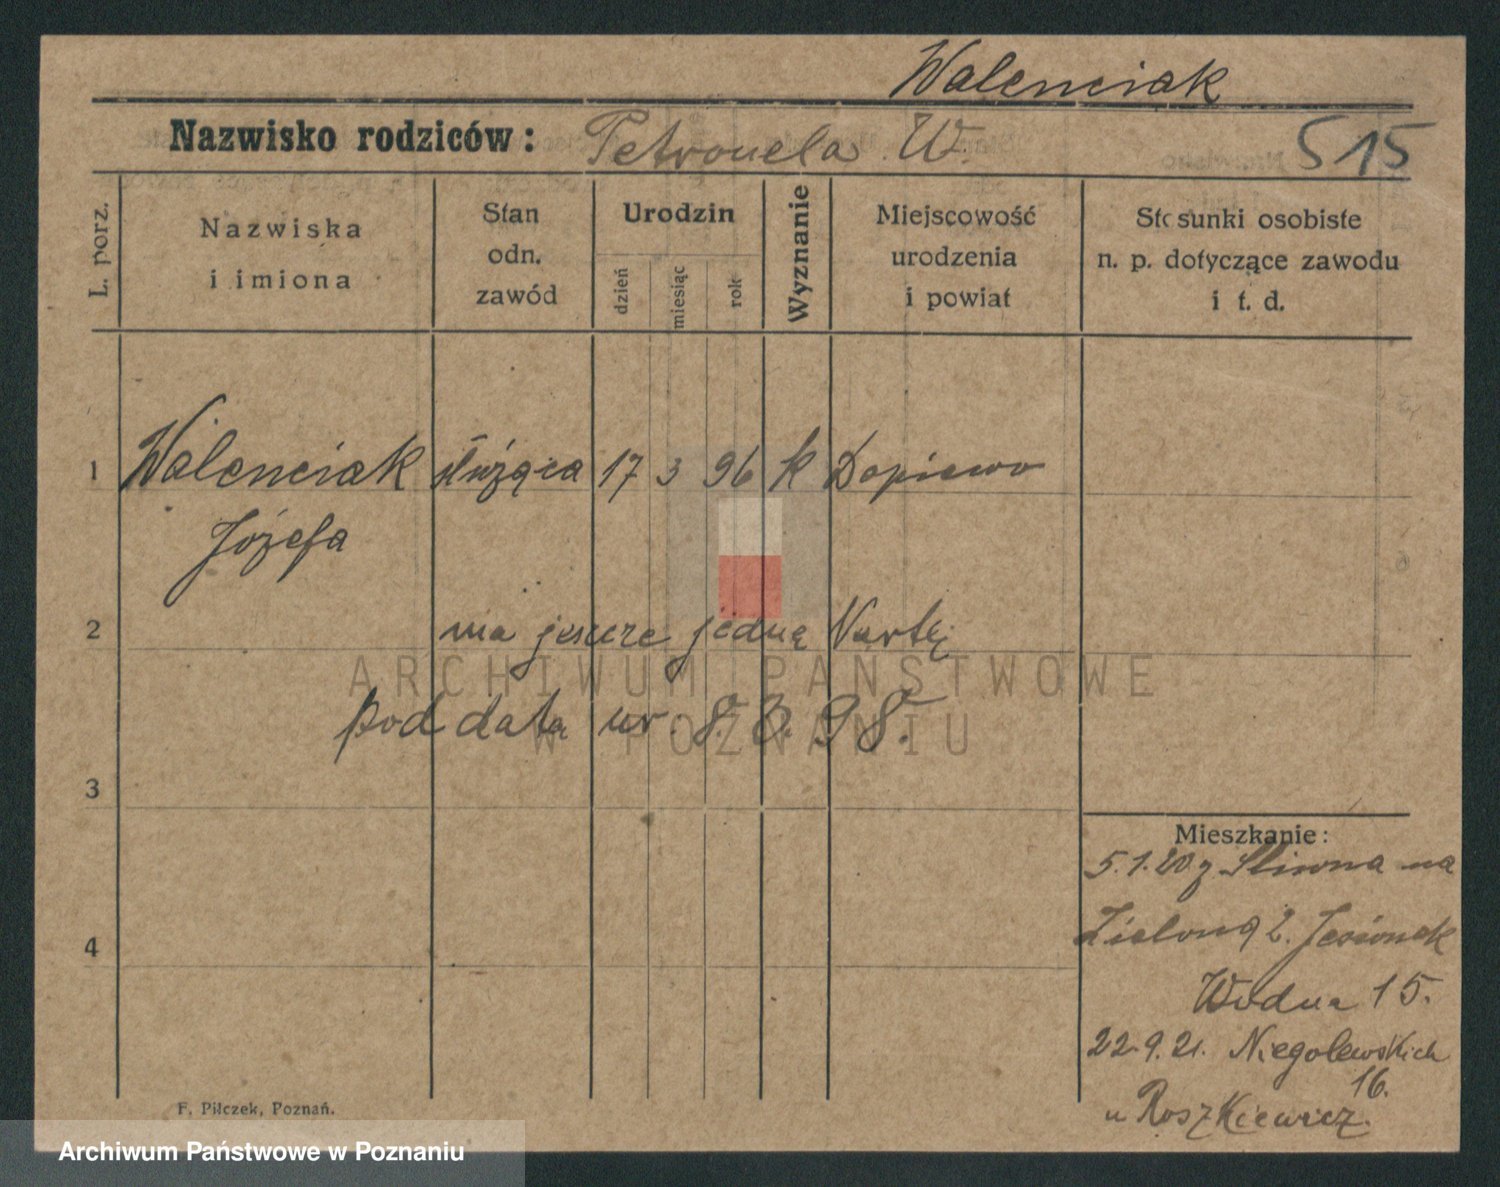 Walenciak
Nazwisko rodziców: Petronela W. 515
L. porz.
Nazwiska
i imiona
Stan
odn.
zawód
Urodzin
dzień
miesiąc
rok
Wyznanie
Miejscowość
urodzenia
i powiat
Stosunki osobiste
n. p. dotyczące zawodu
i t. d.
1 Walenciak służąca 17 3 96 k Dopiewo
Józefa
2 ma jeszcze jedną
pod datą ur. 8. 3. 98.
3
4
Mieszkanie:
5.1.20 z Sliwna na
Zieloną 2. Jesionek
Wodna 15.
22.9.21. Niegolewskich
16.
u Roszkiewicz.
F. Piłczek, Poznań.
ARCHIWUM PAŃSTWOWE
W POZNANIU
Archiwum Państwowe w Poznaniu